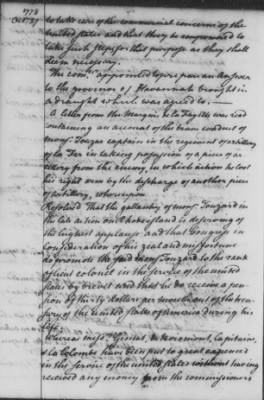 1778
Oct. 27
to take care of the commercial concerns of the
United States and that they be empowered to
take such steps for that purpose as they shall
deem necessary.
The com^ee appointed to prepare an Answer
to the governor of Havannah brought in
a draught which was agreed to.—
A Letter from the Marquis de la Fayette was read
containing an account of the brave conduct of
mons^r Touzard captain in the regiment of artillery
of La Fere in taking possession of a piece of ar
tillery from the enemy, in which action he lost
his right arm by the discharge of another piece
of artillery, whereupon
Resolved That the gallantry of mons^r Touzard in
the late action on Rhode island is deserving of
the highest applause and that Congress in
consideration of his zeal and misfortune
do promote the said mons^r Touzard to the rank
of lieut colonel in the service of the united
states by brevet and that he do receive a pen
sion of thirty dollars per month out of the trea
sury of the united states of America during his
life.
Whereas mess^rs Gimat, de Noirmont, Captains,
& la Colombe have been put to great expences
in the service of the united states without having
received any money from the commissioners